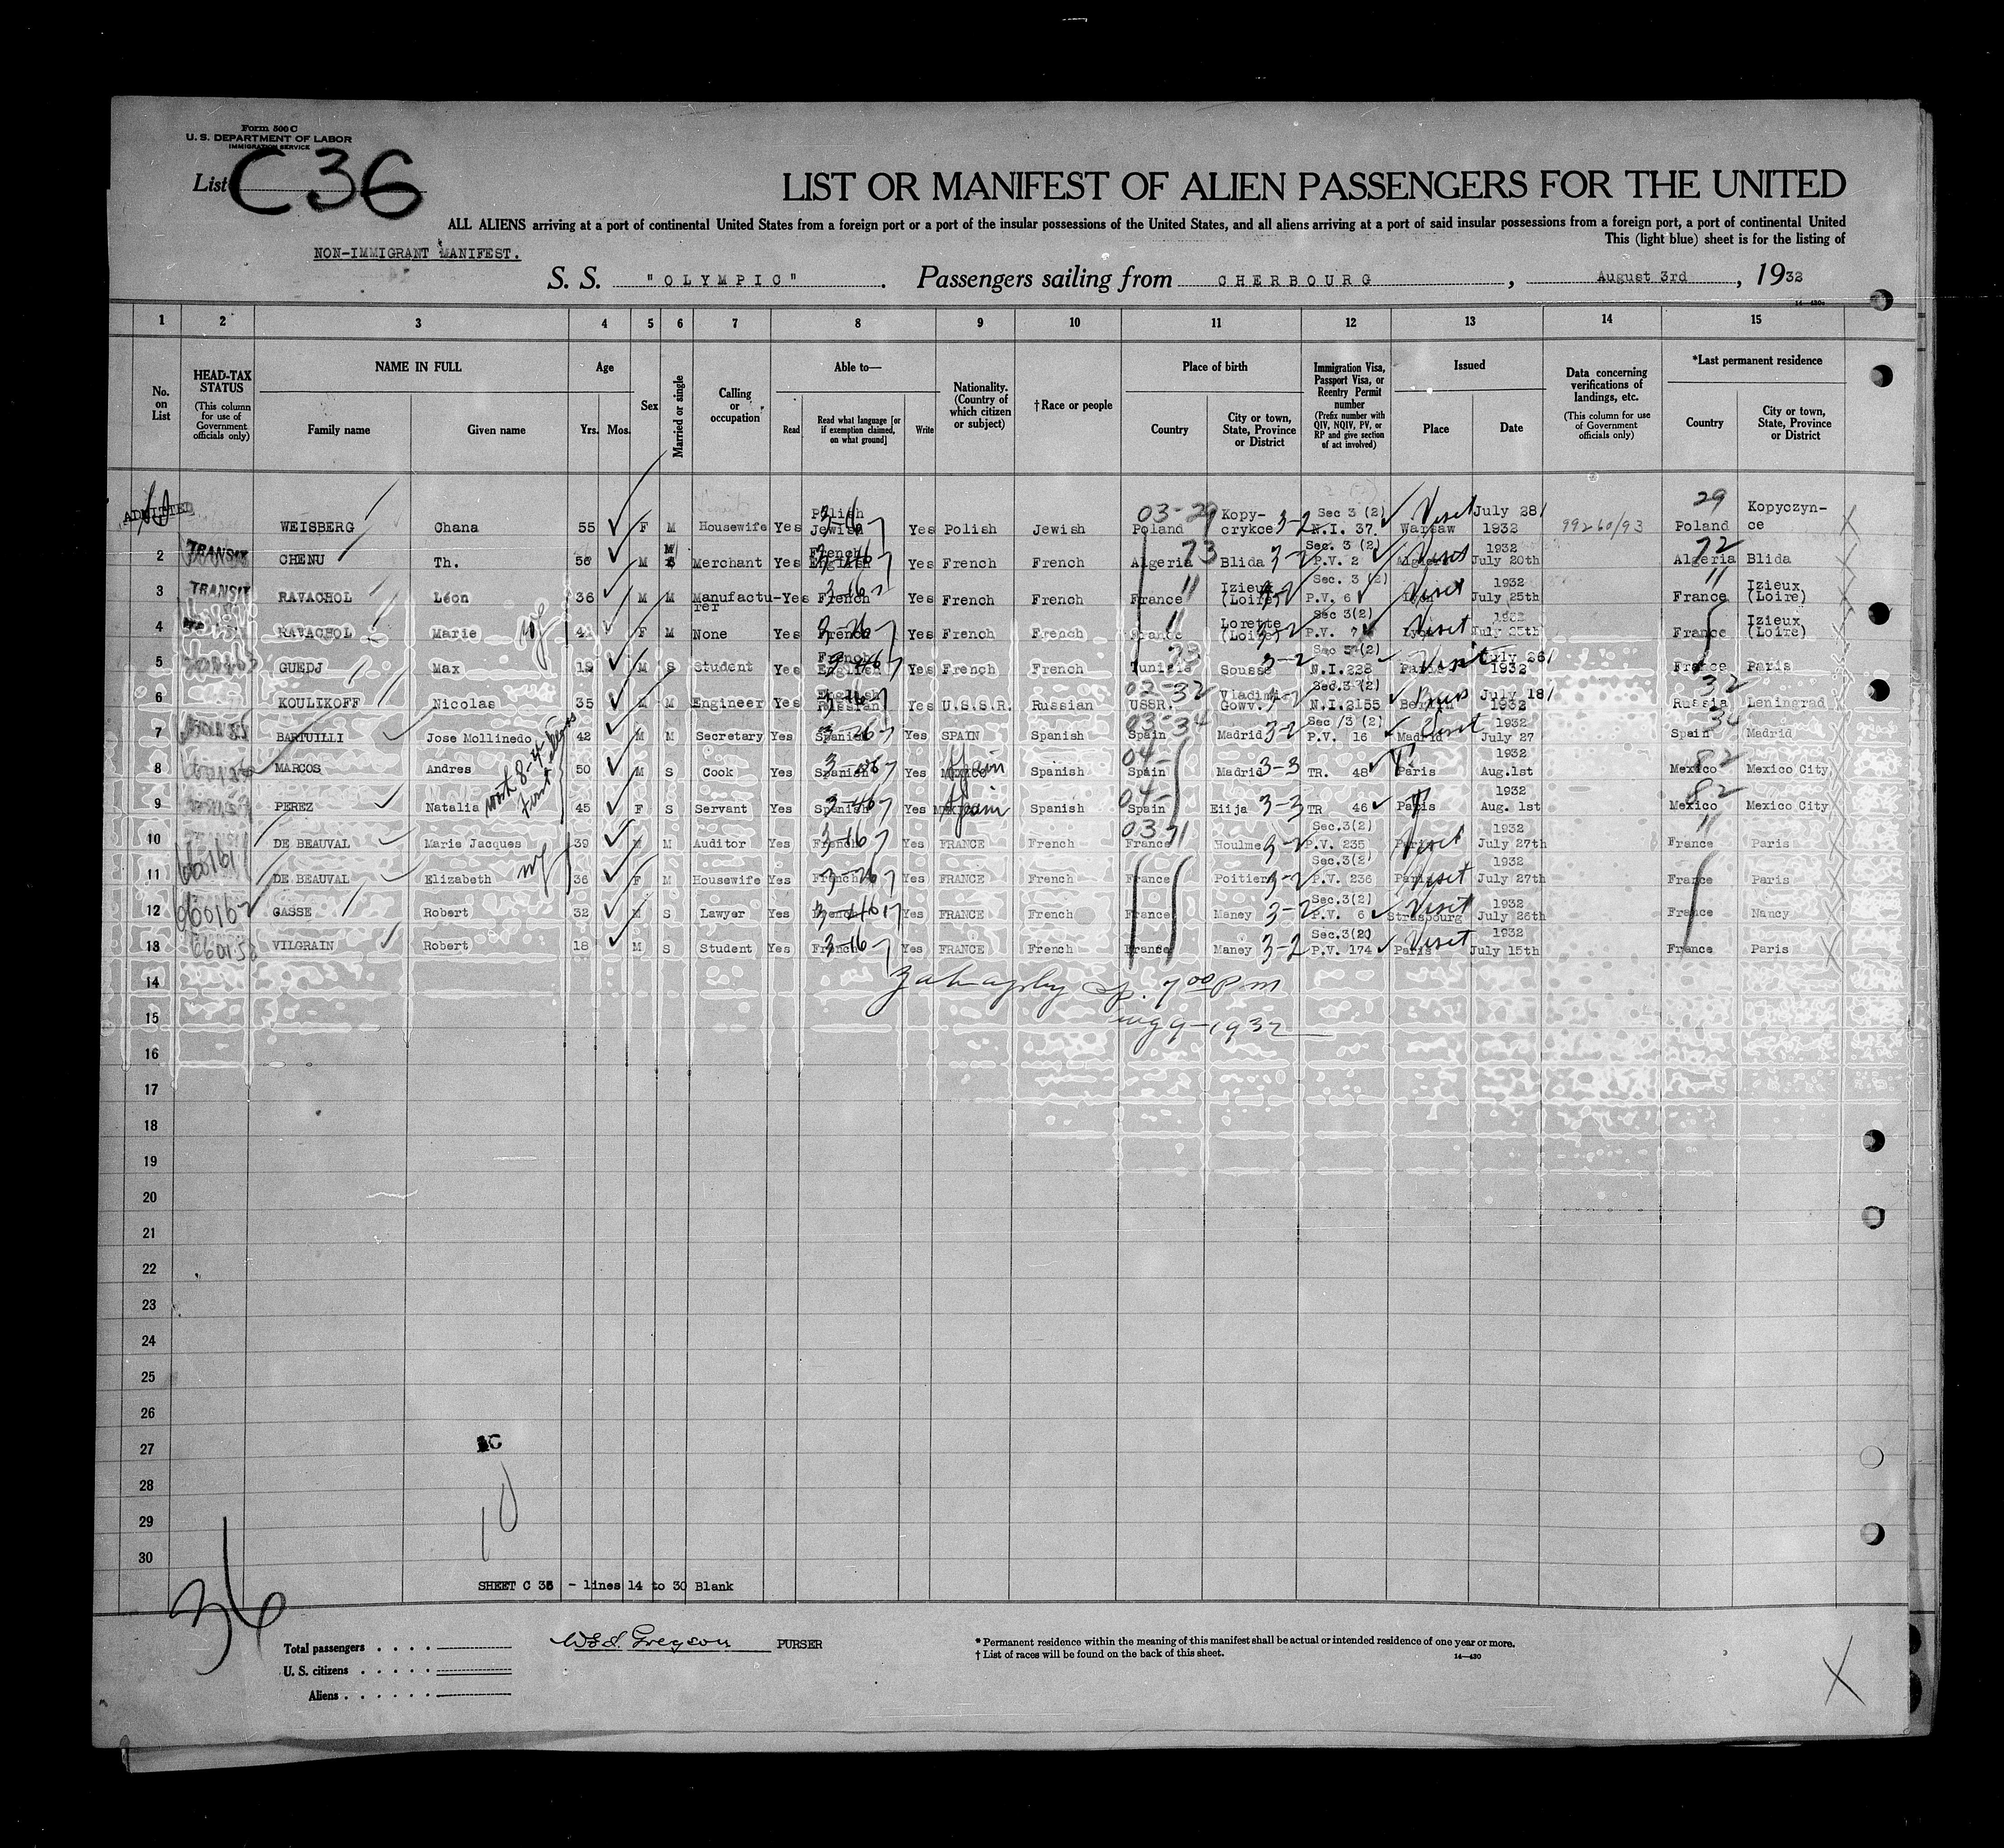 Form 500 C
U. S. DEPARTMENT OF LABOR
IMMIGRATION SERVICE
List C36
LIST OR MANIFEST OF ALIEN PASSENGERS FOR THE UNITED
ALL ALIENS arriving at a port of continental United States from a foreign port or a port of the insular possessions of the United States, and all aliens arriving at a port of said insular possessions from a foreign port, a port of continental United
This (light blue) sheet is for the listing of
NON-IMMIGRANT MANIFEST.
S. S. "OLYMPIC". Passengers sailing from CHERBOURG, August 3rd, 1932
1 2 3 4 5 6 7 8 9 10 11 12 13 14 15
No. on List
HEAD-TAX STATUS (This column for use of Government officials only)
NAME IN FULL Family name Given name
Age Yrs. Mos.
Sex
Married or single
Calling or occupation
Able to— Read Read what language [or if exemption claimed, on what ground] Write
Nationality. (Country of which citizen or subject)
† Race or people
Place of birth Country City or town, State, Province or District
Immigration Visa, Passport Visa, or Reentry Permit number (Prefix number with QIV, NQIV, PV, or RP and give section of act involved)
Issued Place Date
Data concerning verifications of landings, etc. (This column for use of Government officials only)
*Last permanent residence Country City or town, State, Province or District
ADMITTED WEISBERG Chana 55 F M Housewife Yes Polish Jewish 3-16 Yes Polish Jewish 03-29 Poland Kopycrykce 3-2 Sec 3 (2) N.I. 37. Visit Warsaw July 28/ 1932 99260/93 29 Poland Kopyczynce
2 TRANSIT CHENU Th. 56 M M Merchant Yes French English Yes French French 73 Algeria Blida 3-2 Sec. 3 (2) P.V. 2 Visit 1932 July 20th 72 Algeria Blida
3 TRANSIT RAVACHOL Léon 36 M M Manufacturer Yes French Yes French French 11 France Izieux (Loire) Sec. 3 (2) P.V. 6 Visit 1932 July 25th 11 France Izieux (Loire)
4 RAVACHOL Marie F M None Yes French Yes French French 11 France Lorette (Loire) Sec 3(2) P.V. 7 Visit Lyon 1932 July 25th France Izieux (Loire)
5 GUEDJ Max 19 M S Student Yes French English Yes French French 73 Tunisie Sousse 3-2 Sec 3 (2) N.I.228 Visit Paris July 26/ 1932 France Paris
6 KOULIKOFF Nicolas 35 M M Engineer Yes English Russian Yes U.S.S.R. Russian 02-32 USSR. Vladimir Gowv. 3-2 Sec.3 (2) N.I.2155 Berlin July 18/ 1932 32 Russia Leningrad
7 BARTUILLI Jose Mollinedo 42 M M Secretary Yes Spanish Yes SPAIN Spanish 03-34 Spain Madrid 3-2 Sec /3 (2) P.V. 16 Visit Madrid 1932 July 27 34 Spain Madrid
8 MARCOS Andres 50 M S Cook Yes Spanish Yes Mexico Spain Spanish 04- Spain Madrid 3-3 TR. 48 T Paris 1932 Aug.1st 82 Mexico Mexico City
9 PEREZ Natalia 45 F S Servant Yes Spanish Yes Spain Spanish 04- Spain Eiija 3-3 TR 46 T Paris 1932 Aug. 1st 82 Mexico Mexico City
10 DE BEAUVAL Marie Jacques 39 M M Auditor Yes French 3-16 Yes FRANCE French 03-11 France Houlme 3-2 Sec.3(2) P.V. 235 Visit Paris 1932 July 27th 11 France Paris
11 DE BEAUVAL Elizabeth wf 36 F M Housewife Yes French Yes FRANCE French France Poitiers 3-2 Sec.3(2) P.V. 236 Visit Paris 1932 July 27th France Paris
12 GASSE Robert 32 M S Lawyer Yes French Yes FRANCE French France Maney 3-2 Sec.3(2) P.V. 6 Visit Strasbourg 1932 July 26th France Nancy
13 VILGRAIN Robert 18 M S Student Yes French 3-16 Yes FRANCE French France Maney 3-2 Sec.3(2) P.V. 174 Visit Paris 1932 July 15th France Paris
14 7 00 P m
15 1932
16
17
18
19
20
21
22
23
24
25
26
27
28
29
30
10
SHEET C 36 - lines 14 to 30 Blank
36
Total passengers
U. S. citizens
Aliens
Gregson PURSER
* Permanent residence within the meaning of this manifest shall be actual or intended residence of one year or more.
† List of races will be found on the back of this sheet.
14—430
X